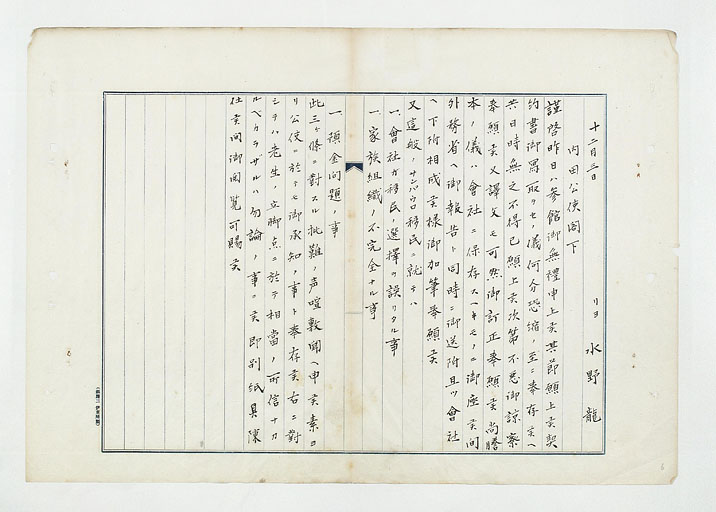 十二月三日 リヨ 水野龍
内田公使閣下
謹啓昨日ハ参館御無禮申上候其節願上候契
約書御寫取リセノ儀何分恐縮ノ至ニ奉存候ヘ
共日時無之不得已願上候次第不悪御諒察
奉願候又譯文モ可然御訂正奉願候尚謄
本ノ儀ハ會社ニ保存スヘキモノニ御座候間
外務省ヘ御報告ト同時ニ御送附且ツ會社
ヘ下附相成候様御加筆奉願候
又這般ノサンパウロ移民ニ就テハ
一、會社ガ移民ノ選擇ヲ誤リタル事
一、家族組織ノ不完全ナル事
一、預金問題ノ事
此三ヶ條ニ對スル批難ノ声喧敷聞ヘ申候素ヨ
リ公使ニ於テモ御承知ノ事ト奉存候右ニ對
シテハ老生ノ立脚点ニ於テ相當ノ可信ナカ
ルベカラザルハ勿論ノ事ニ候即別紙具陳
仕候間御閲覧可賜候